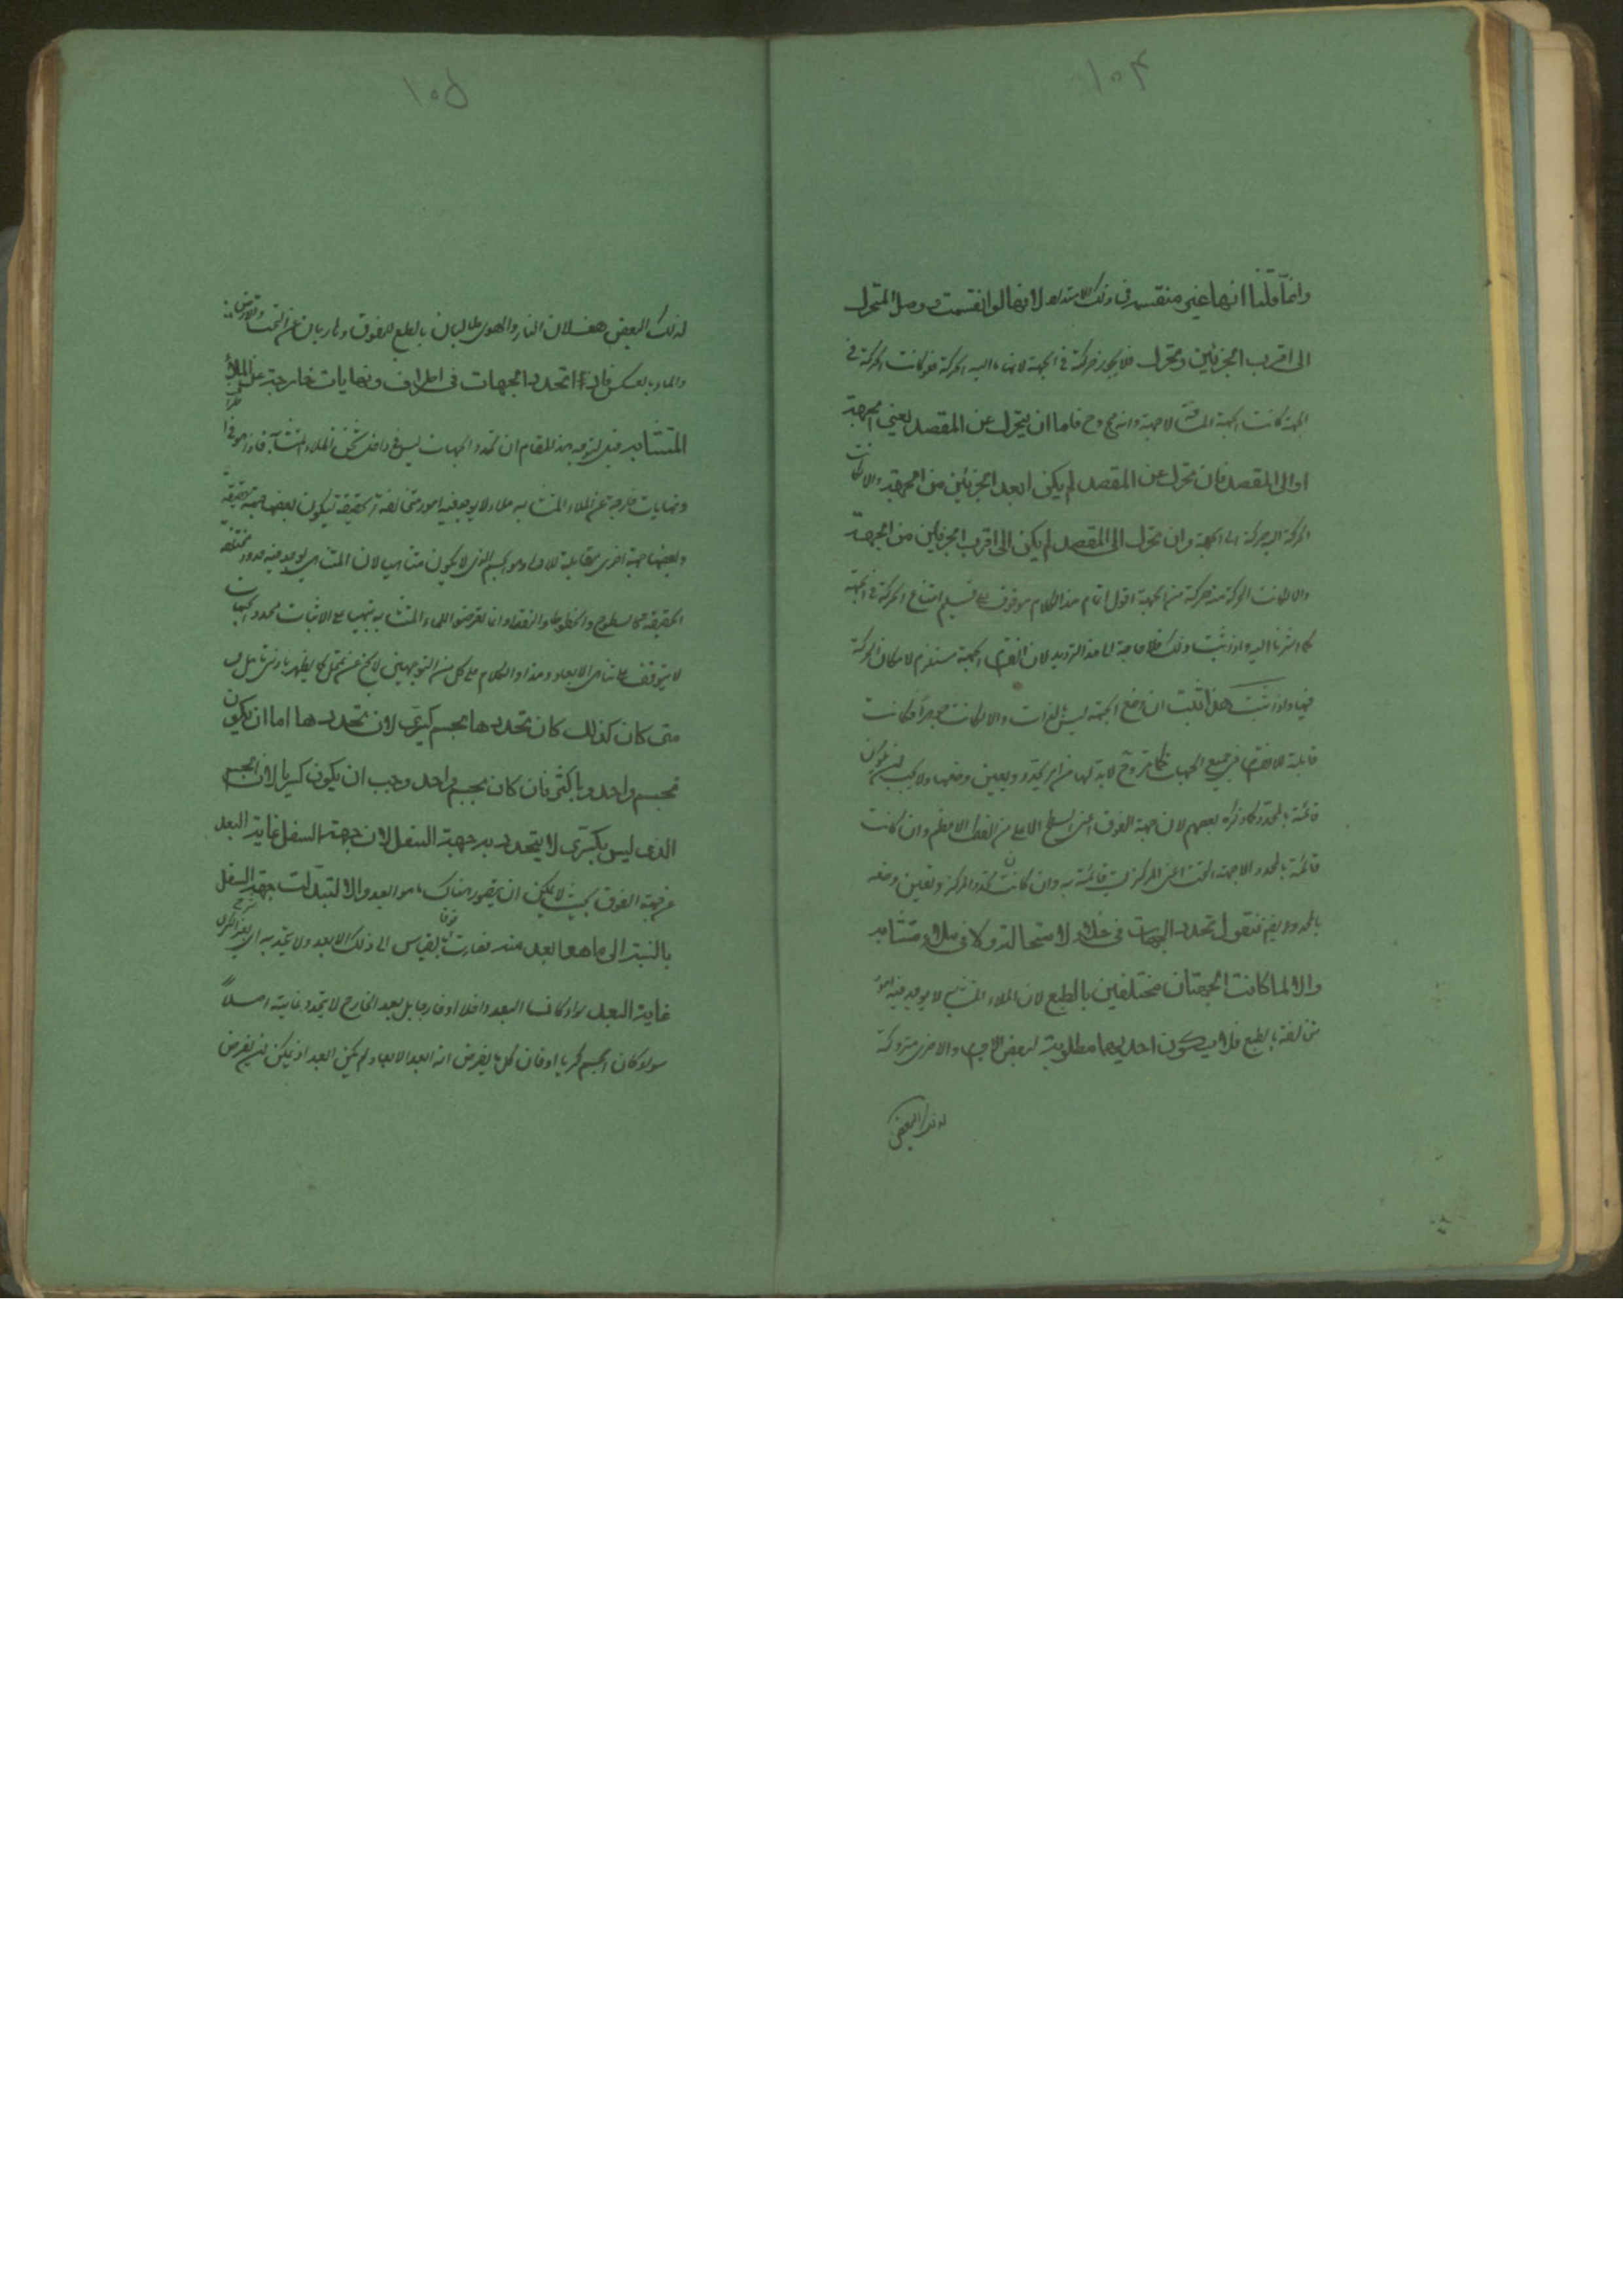 ١٥٤
وانما قلنا انها غير منقسمة في ذلك الامتداد لانها لو انقسمت ووصل المتحرك
الى اقرب الجزئين وتحرك فلا يجوز حركته في الجهة لانها ما اليه الحركة فلو كانت الحركة في
الجهة كانت الجهة المسافة لا جهة وانه مح وح فاما ان يتحرك عن المقصد يعني الجهة
او الى المقصد فان تحرك عن المقصد لم يكن ابعد الجزئين من الجهة والا لكانت
الحركة اليه حركة الى الجهة وان تحرك الى المقصد لم يكن الى اقرب الجزئين من الجهة
والا لكانت الحركة منه حركة من الجهة اقول اتمام هذا الكلام موقوف على تسليم امتناع الحركة في الجهة
كما اشرنا اليه واذا ثبت ذلك فلا حاجة الى هذا الترديد لان انقسام الجهة مستلزم لامكان الحركة
فيها واذا ثبت هذا ثبت ان وضع الجهة ليس بالذات والا لكانت جوهرا فكانت
قابلة للانقسام في جميع الجهات كما مر وح لابد لها من امر يحدد ويعين وضعها ولا يجب ان يكون
قائمة بالمحدد كما ذكره بعضهم لان جهة الفوق اعني السطح الاعلى من الفلك الاعظم وان كانت
قائمة بالمحدد الا جهة التحت اعني المركز ليست قائمة به وان كانت تحدد المركز وتعين وضعه
بالمحدد ايضم فنقول تحدد الجهات في خلاء لاستحالته ولا في ملاء متشابه
والا لما كانت الجهتان مختلفين بالطبع لان الملاء المتشابه لا يوجد فيه امور
متخالفة بالطبع فلا يكون احديهما مطلوبة لبعض الاجسام والاخرى متروكة
لذلك البعض
١٥٥
لذلك البعض هف لان النار والهواء طالبان بالطبع للفوق وهاربان عن التحت والارض
والماء بالعكس فاذا تحدد الجهات في اطراف ونهايات خارجة عن الملاء
المتشابه قيل توجيه هذا المقام ان تحدد الجهات ليس في داخل ثخن الملاء المتشابه فاذا هو في اطراف
ونهايات خارجة عن الملاء المتشابه ملاء لا يوجد فيه امور متخالفة الحقيقة ليكون بعضها جهة حقيقة
وبعضها جهة اخرى مقابلة للاولى وهو الجسم الذي لا يكون متناهيا لان المتناهي يوجد فيه حدود مختلفة
الحقيقة كالسطوح والخطوط والنقط وانما تعرضوا للملاء المتشابه تنبيها على الاثبات محدد الجهات
لا يتوقف على تناهي الابعاد وهذا والكلام على كل من التوجيهين لا يخ عن تمحل كما يظهر بادنى تامل و
متى كان كذلك كان تحددها بجسم كري لان تحددها اما ان يكون
بجسم واحد او باكثر فان كان بجسم واحد وجب ان يكون كريا لان الجسم
الذي ليس بكري لا يتحدد به جهة السفل لان جهة السفل غاية البعد
عن جهة الفوق بحيث لا يمكن ان يتصور هناك ما هو ابعد والا لتبدلت جهة السفل
بالنسبة الى ما هو ابعد منه فصارت فوقا بالقياس الى ذلك الابعد ولا يتحدد به اي بغير الكري
غاية البعد سواء كان البعد داخلا او خارجا بل بعد الخارج لا يتحدد غايته اصلا
سواء كان الجسم كريا او فان كل ما يفرض انه ابعد الابعاد لم يكن ابعد اذ يمكن ان يفرض